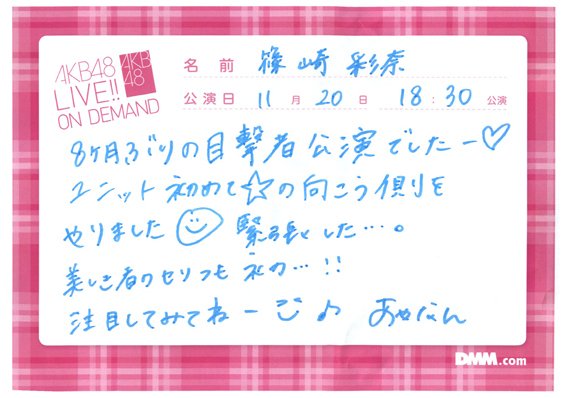 AKB48
LIVE!!
ON DEMAND
AKB
48
名前 篠崎彩奈
公演日 11月20日 18:30公演
8ヶ月ぶりの目撃者公演でしたー♡
ユニット初めて☆の向こう側を
やりました☺ 緊張した…。
美しき者のセリフも 初の…!!
注目してみてねーじ♪ あやなん
DMM.com